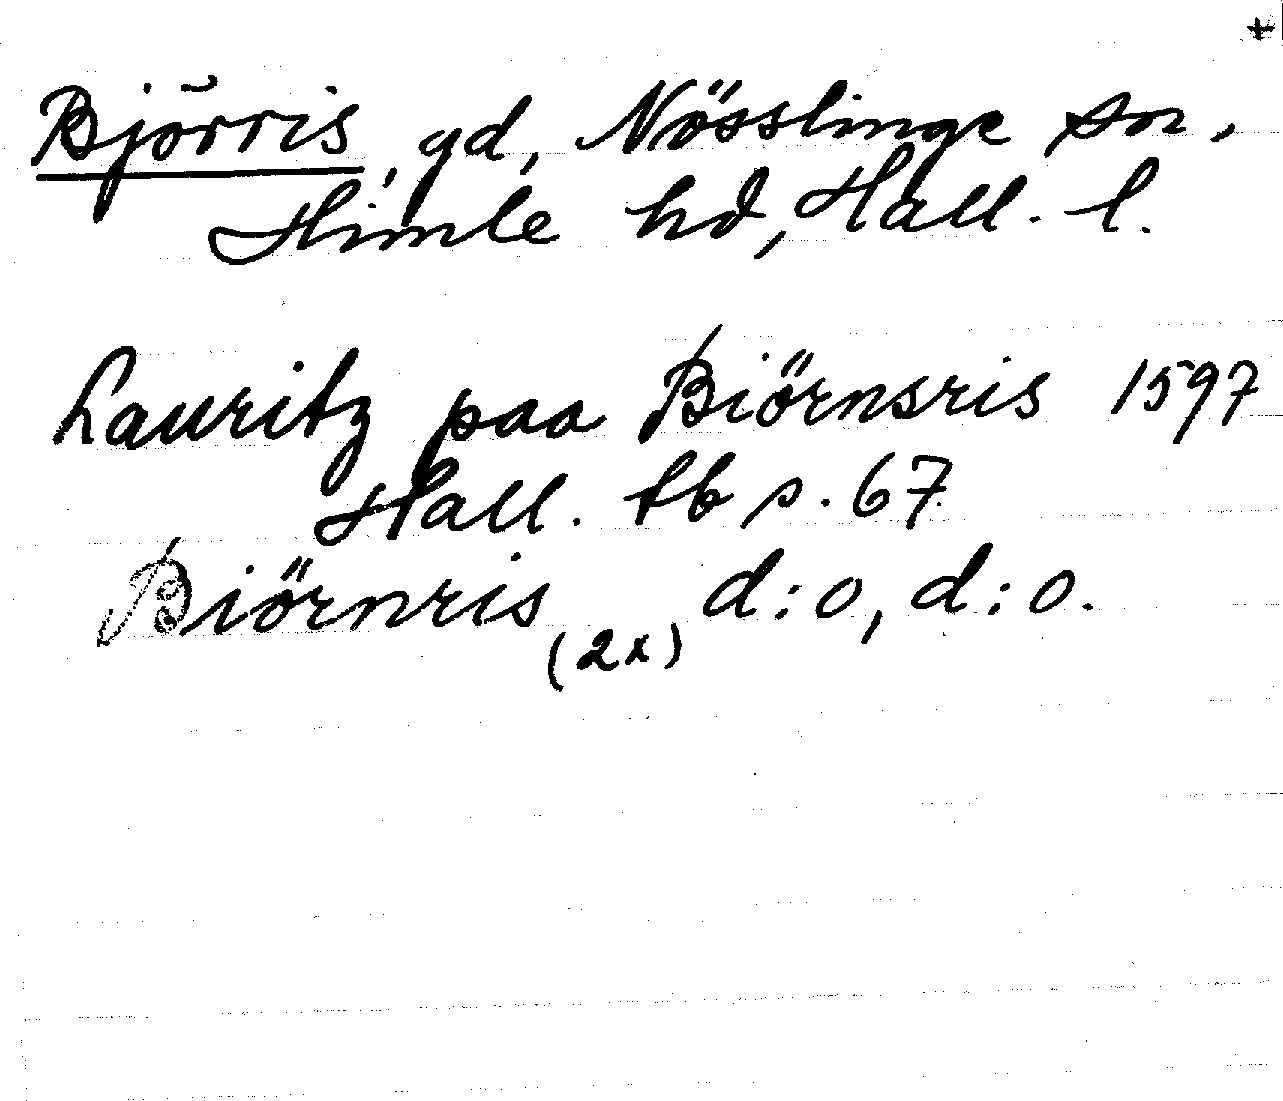 +
Björris, gd, Nösslinge sn,
Himle hd, Hall. l.
Lauritz paa Biörnsris 1597
Hall. tb s. 67
Biörnris d:o, d:o.
(2x)